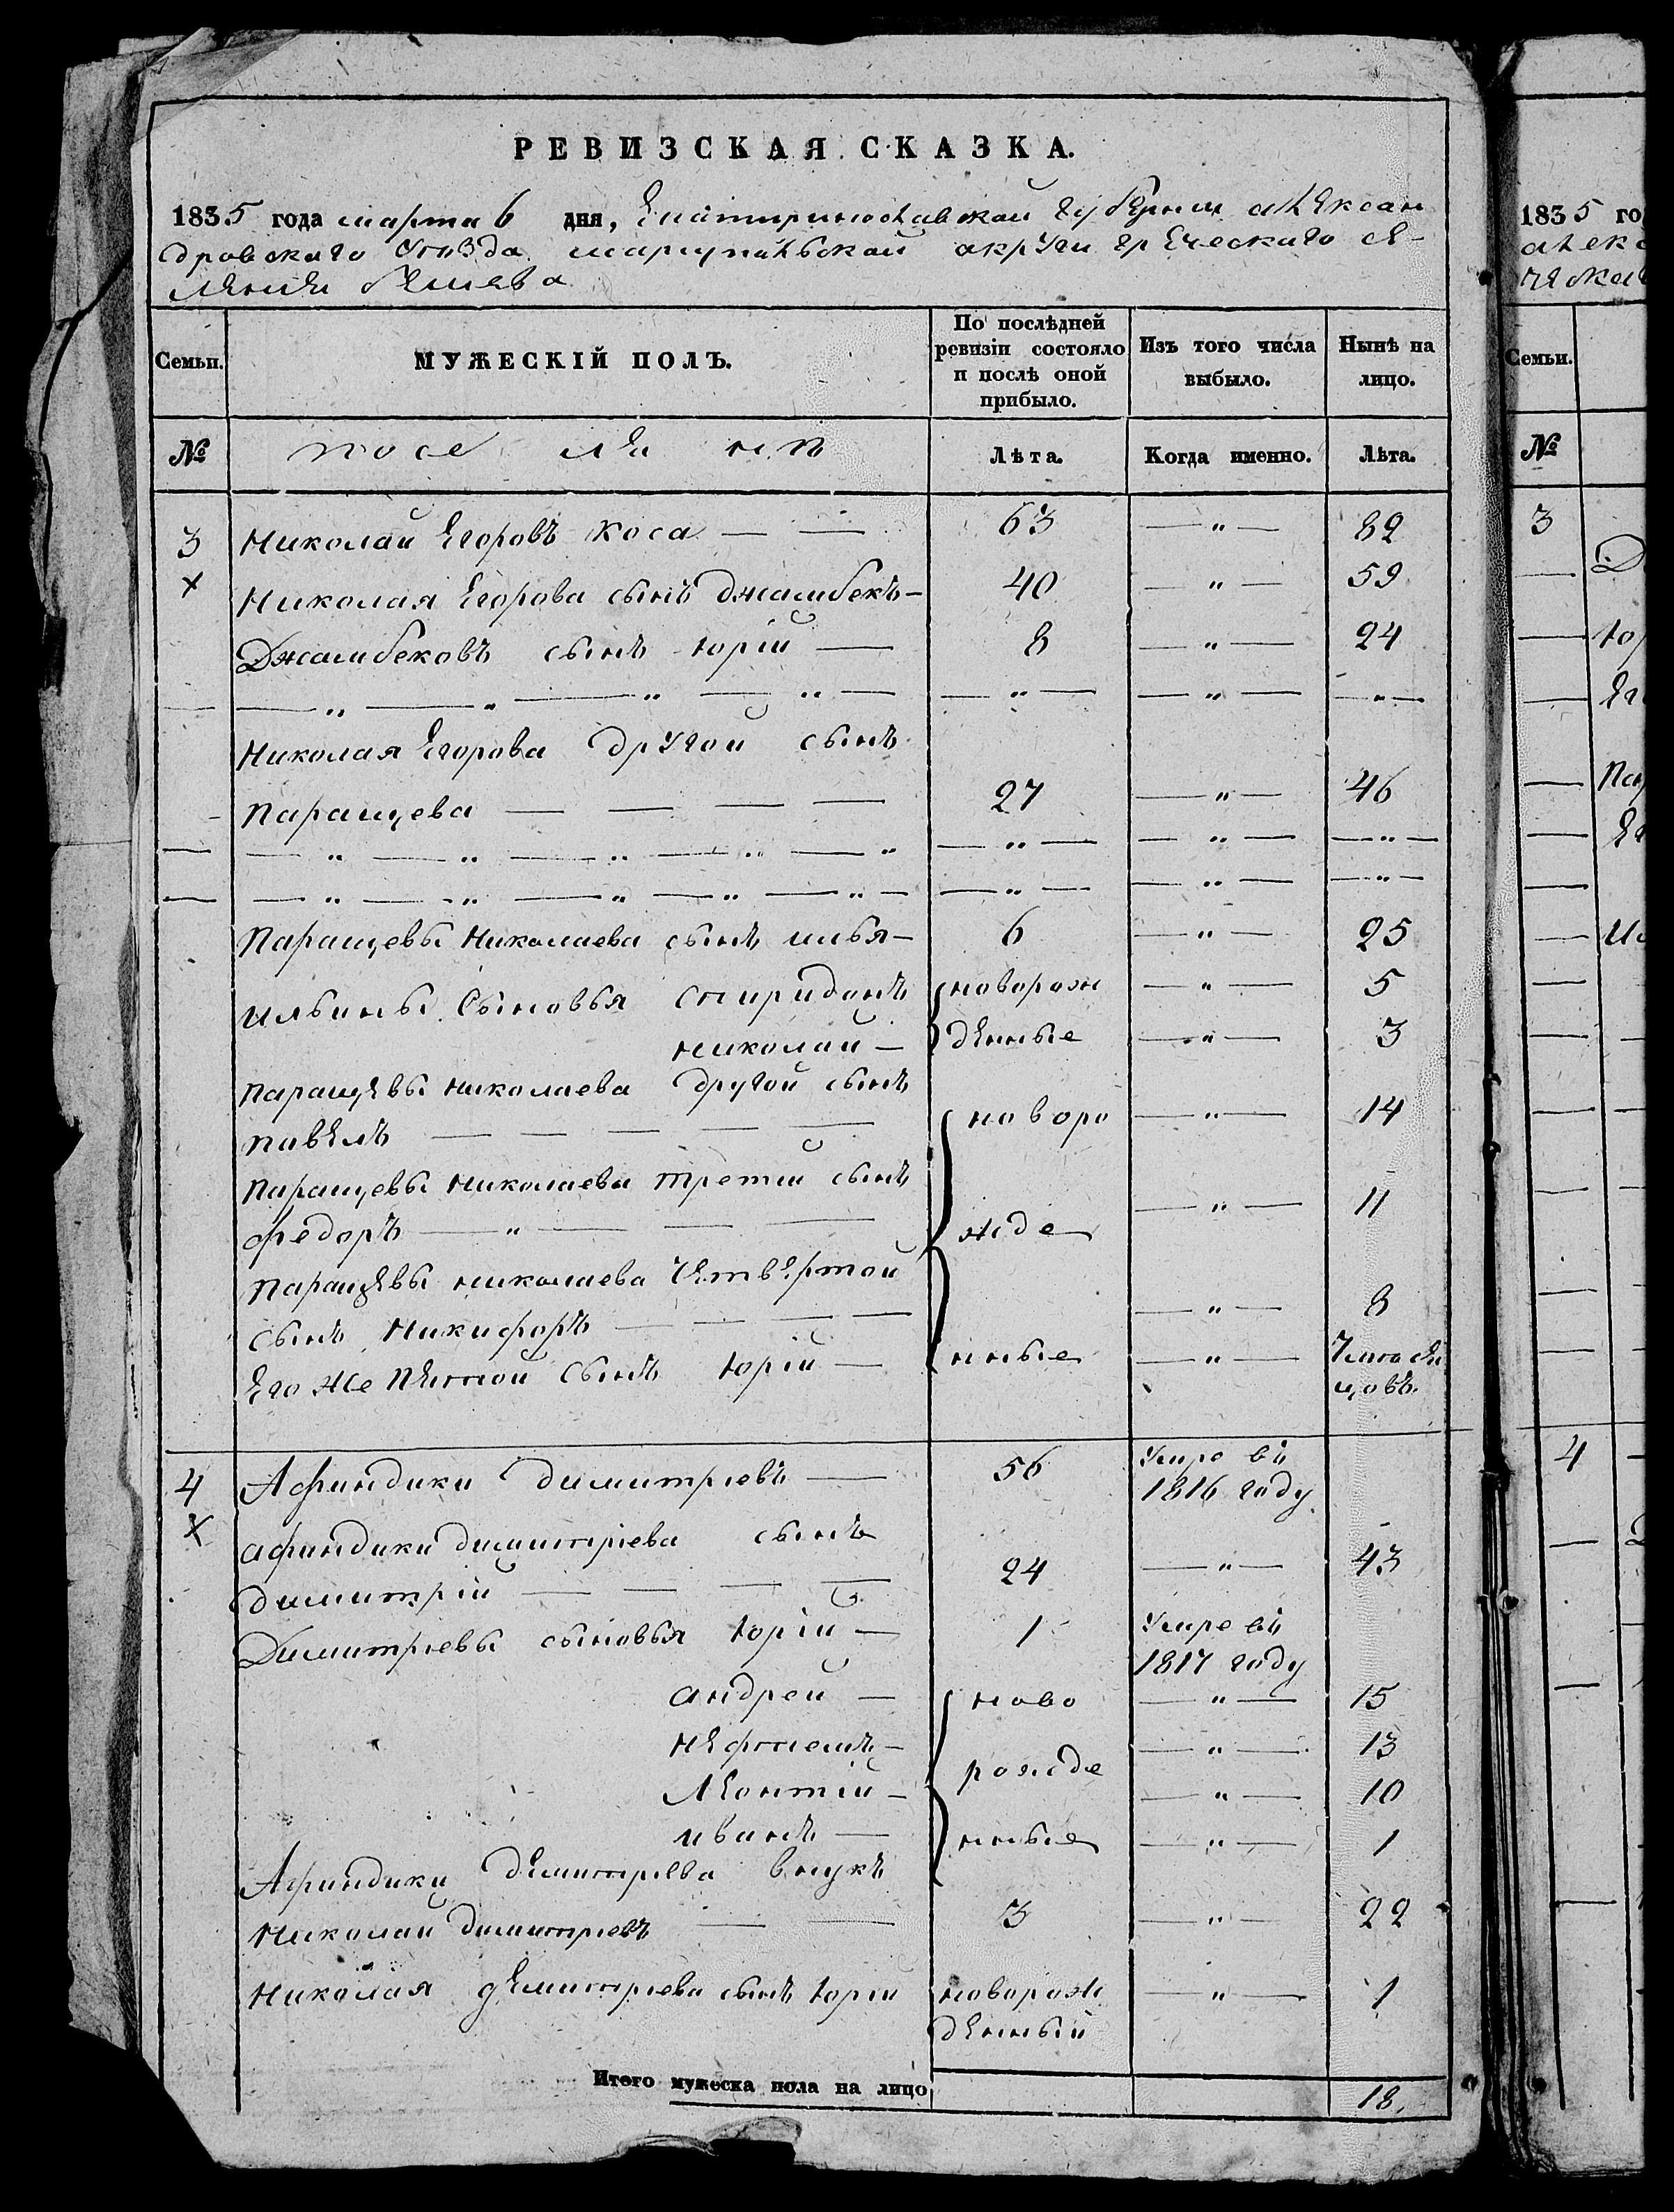 РЕВИЗСКАЯ СКАЗКА.
1835 года марта 6 дня, Екатиринославской губернии алексан
дровского уѣзда мариупальской округи греческаго се-
ления бешева
Семьи. МУЖЕСКІЙ ПОЛЪ. По послѣдней ревизіи состояло и послѣ оной прибыло. Изъ того числа выбыло. Нынѣ на лицо.
№ посе ля нѣ Лѣта. Когда именно. Лѣта.
3 Николай Егоровъ коса — — 63 — „ — 82
× Николая Егорова сынъ джамбекъ — 40 — „ — 59
Джамбековъ сынъ юрій — 8 — „ — 24
— „ — „ — „ — „ — — „ — — „ — — „ —
Николая Егорова другой сынъ
паращева — — — — 27 — „ — 46
— „ — „ — „ — „ — „ — „ — — „ — — „ —
— „ — „ — „ — „ — „ — — „ — — „ — — „ —
Паращевы Николаева сынъ илья — 6 — „ — 25
ильины сыновья спиридонъ новорож — „ — 5
николай — денные — „ — 3
паращевы николаева другой сынъ
павелъ — — — — — новоро — „ — 14
паращевы николаева третий сынъ
федоръ — „ — — — жде — „ — 11
паращевы николаева четвертой
сынъ Никифоръ — — — — — „ — 8
Его же пятой сынъ юрій — нные — „ — 7 мѣся
цовъ.
4 Афиндики димитріевъ — 56 умре въ
1816 году
× афиндики димитріева сынъ
димитрій — — — — 24 — „ — 43
Димитріевы сыновья юрій — 1 умре въ
1817 году
андрей — ново — „ — 15
нефтемъ — — „ — 13
Леонтій — рожде — „ — 10
иванъ — нные — „ — 1
Афиндики демитріева внукъ
Николай димитріевъ — — 3 — „ — 22
Николая демитріева сынъ юрій новорож — „ — 1
денный
Итого мужеска пола на лицо 18.
1835 го
алекс
ческаг
Семьи.
№
3
Д
юр
Ег
Пар
Ег
Ил
4